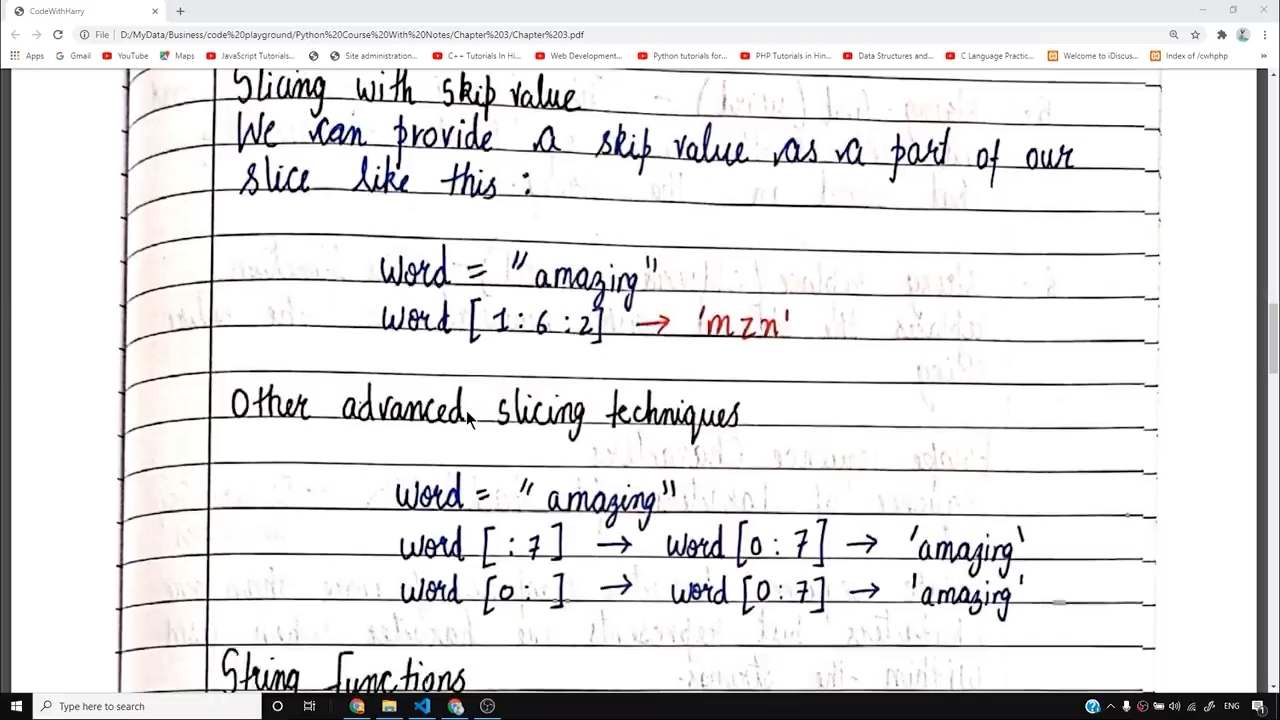 CodeWithHarry
File | D:/MyData/Business/code%20playground/Python%20Course%20With%20Notes/Chapter%203/Chapter%203.pdf
Apps Gmail YouTube Maps JavaScript Tutorials... Site administration... C++ Tutorials In Hi... Web Development... Python tutorials for... PHP Tutorials in Hin... Data Structures and... C Language Practic... Welcome to iDiscus... Index of /cwhphp
Slicing with skip value
We can provide a skip value as a part of our
slice like this :
word = "amazing"
word [ 1 : 6 : 2] → 'mzn'
Other advanced slicing techniques
word = "amazing"
word [ : 7 ] → word [0 : 7] → 'amazing'
word [0 : ] → word [0 : 7] → 'amazing'
String functions
Type here to search
ENG